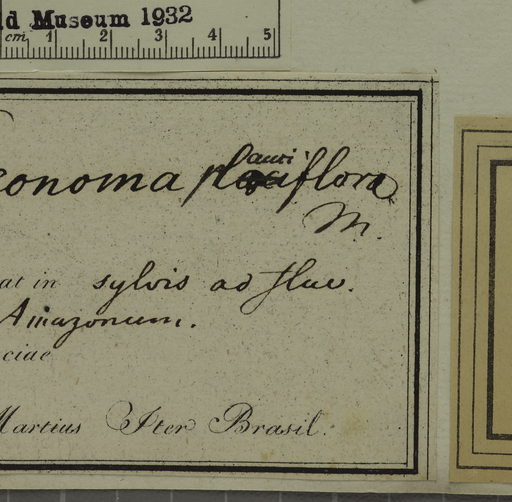 d Museum 1932
cm 1 2 3 4 5
eonoma pauciflora
M.
at in sylvis ad fluv.
Amazonum.
ciae
Martius Iter Brasil.